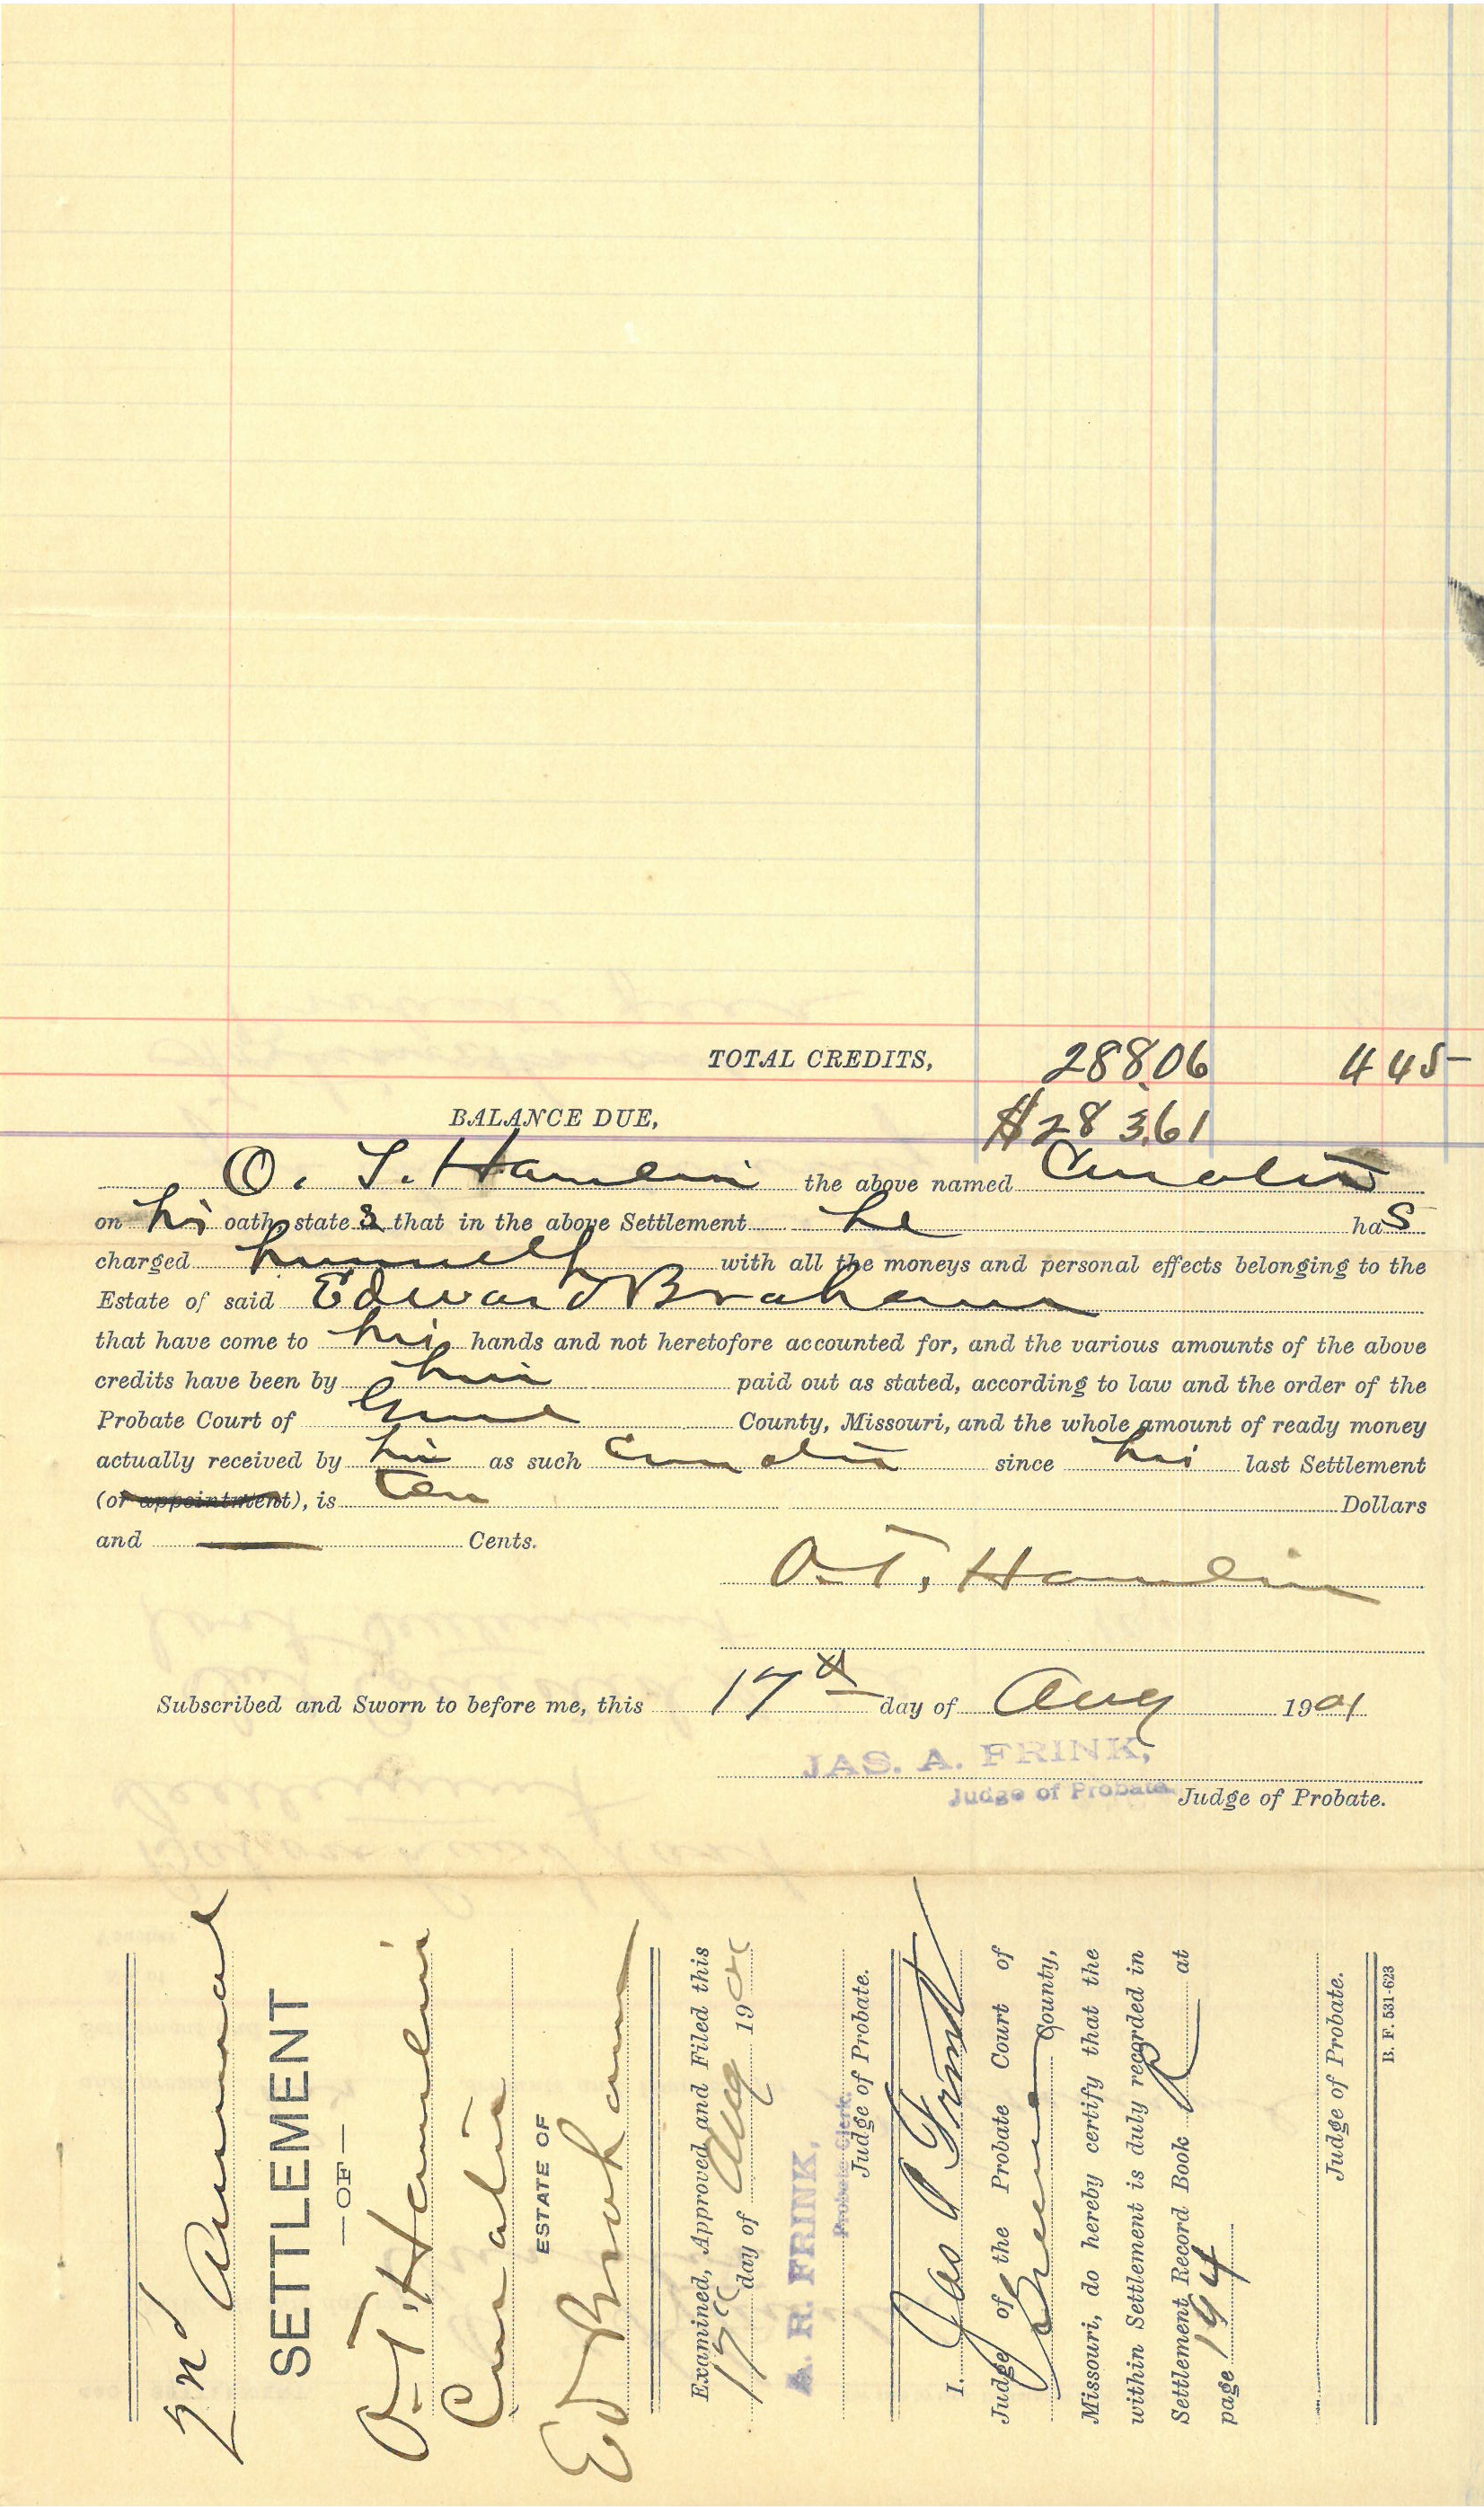 TOTAL CREDITS, 288.06 4 45
BALANCE DUE, $283.61
O. T. Hamlin the above named Curator
on his oath, states that in the above Settlement he has
charged himself with all the moneys and personal effects belonging to the
Estate of said Edward Braham
that have come to his hands and not heretofore accounted for, and the various amounts of the above
credits have been by him paid out as stated, according to law and the order of the
Probate Court of Greene County, Missouri, and the whole amount of ready money
actually received by him as such Curator since his last Settlement
(or appointment), is ten Dollars
and — Cents.
O. T. Hamlin
Subscribed and Sworn to before me, this 17th day of Aug 1901
JAS. A. FRINK,
Judge of Probate. Judge of Probate.
2nd Annual
SETTLEMENT
—OF—
O. T. Hamlin
Curator
ESTATE OF
Ed Braham
Examined, Approved and Filed this
17th day of Aug 1901
A. R. FRINK,
Probate Clerk.
Judge of Probate.
I. Jas A Frink
Judge of the Probate Court of
Greene County,
Missouri, do hereby certify that the
within Settlement is duly recorded in
Settlement Record Book R at
page 194
Judge of Probate.
B. F. 531-623